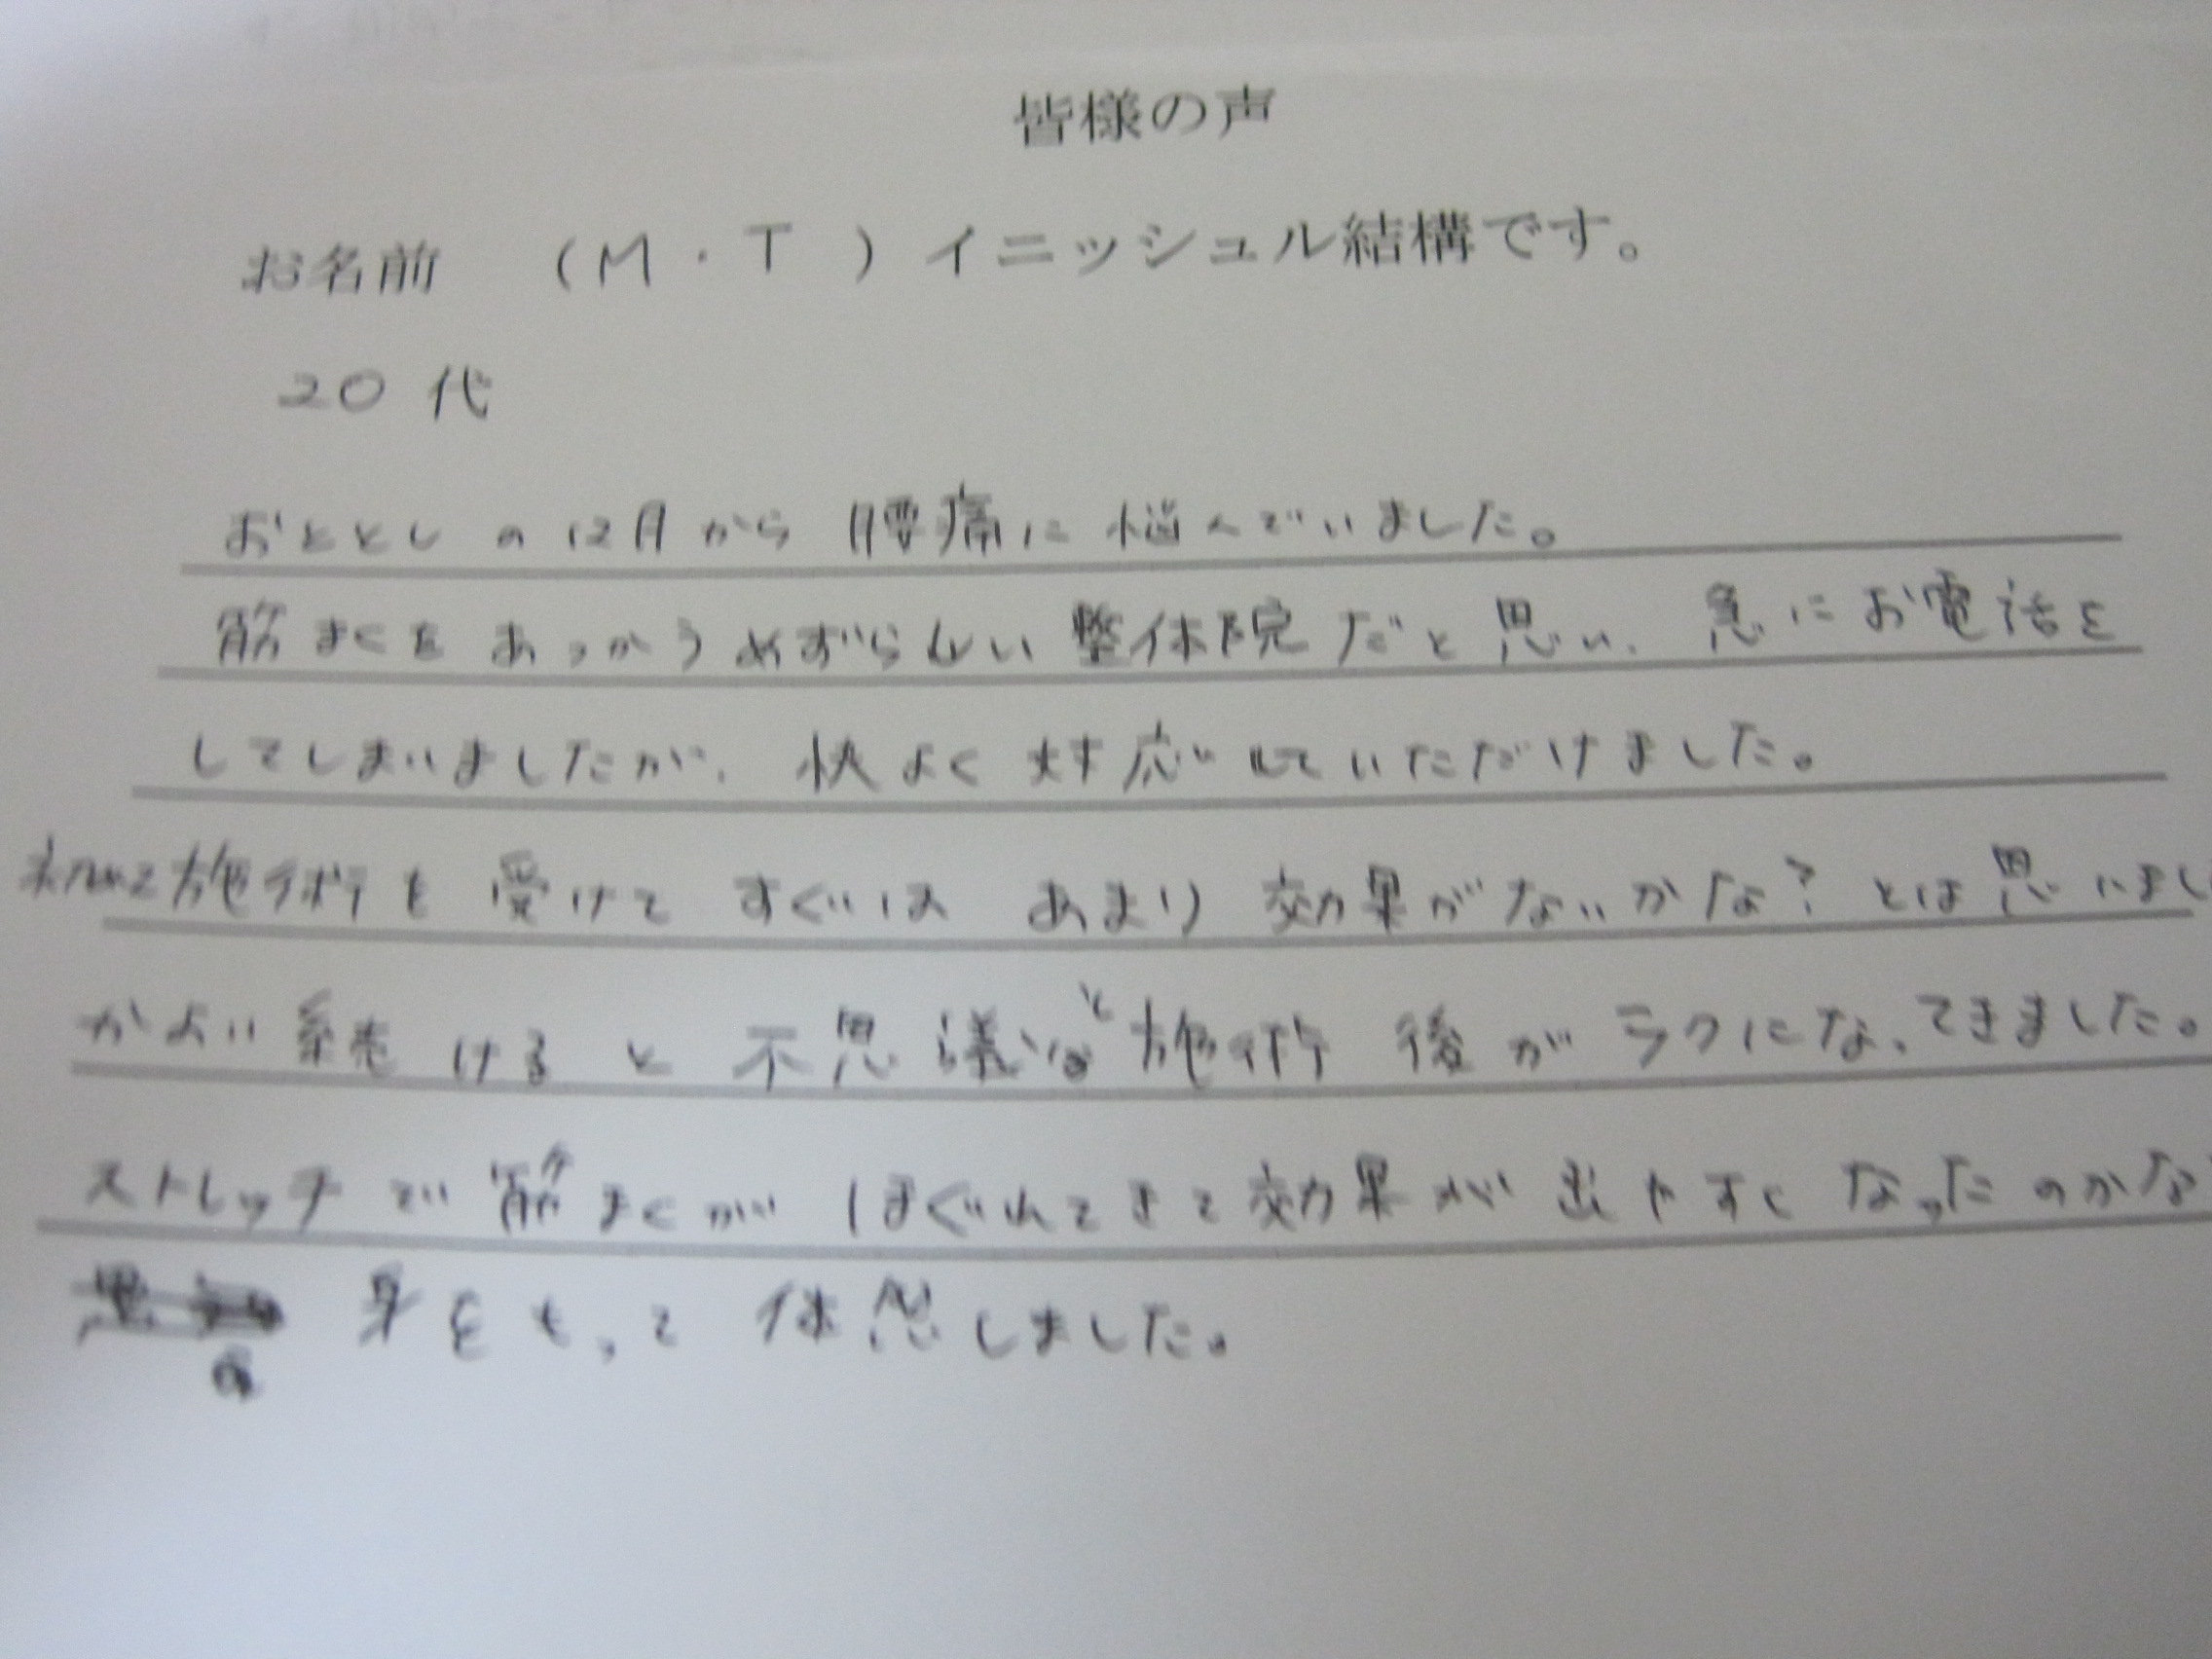 皆様の声
お名前 (M・T) イニッシュル結構です。
20代
おととしの12月から腰痛に悩んでいました。
筋まくをあつかうめずらしい整体院だと思い、急にお電話を
してしまいましたが、快よく対応していただけました。
初めて施術を受けてすぐは あまり効果がないかな?とは思いまし
かよい続けると不思議と施術後がラクになってきました。
ストレッチで筋まくがほぐれてきて効果が出やすくなったのかな
身をもって体感しました。